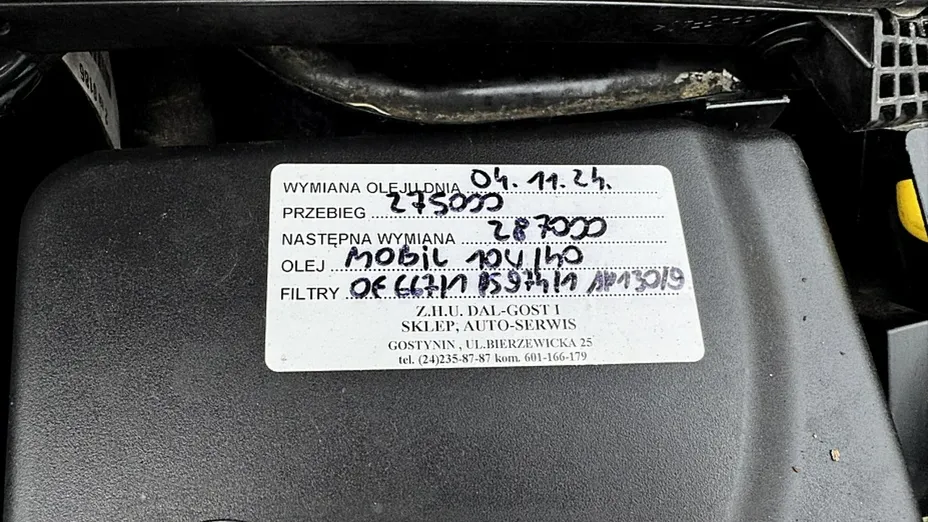 WYMIANA OLEJU DNIA 04.11.24.
PRZEBIEG 275000
NASTĘPNA WYMIANA 287000
OLEJ MOBIL 10W/40
FILTRY OE 667/1 PS974/1 AP130/9
Z.H.U. DAL-GOST I
SKLEP, AUTO-SERWIS
GOSTYNIN , UL.BIERZEWICKA 25
tel. (24)235-87-87 kom. 601-166-179